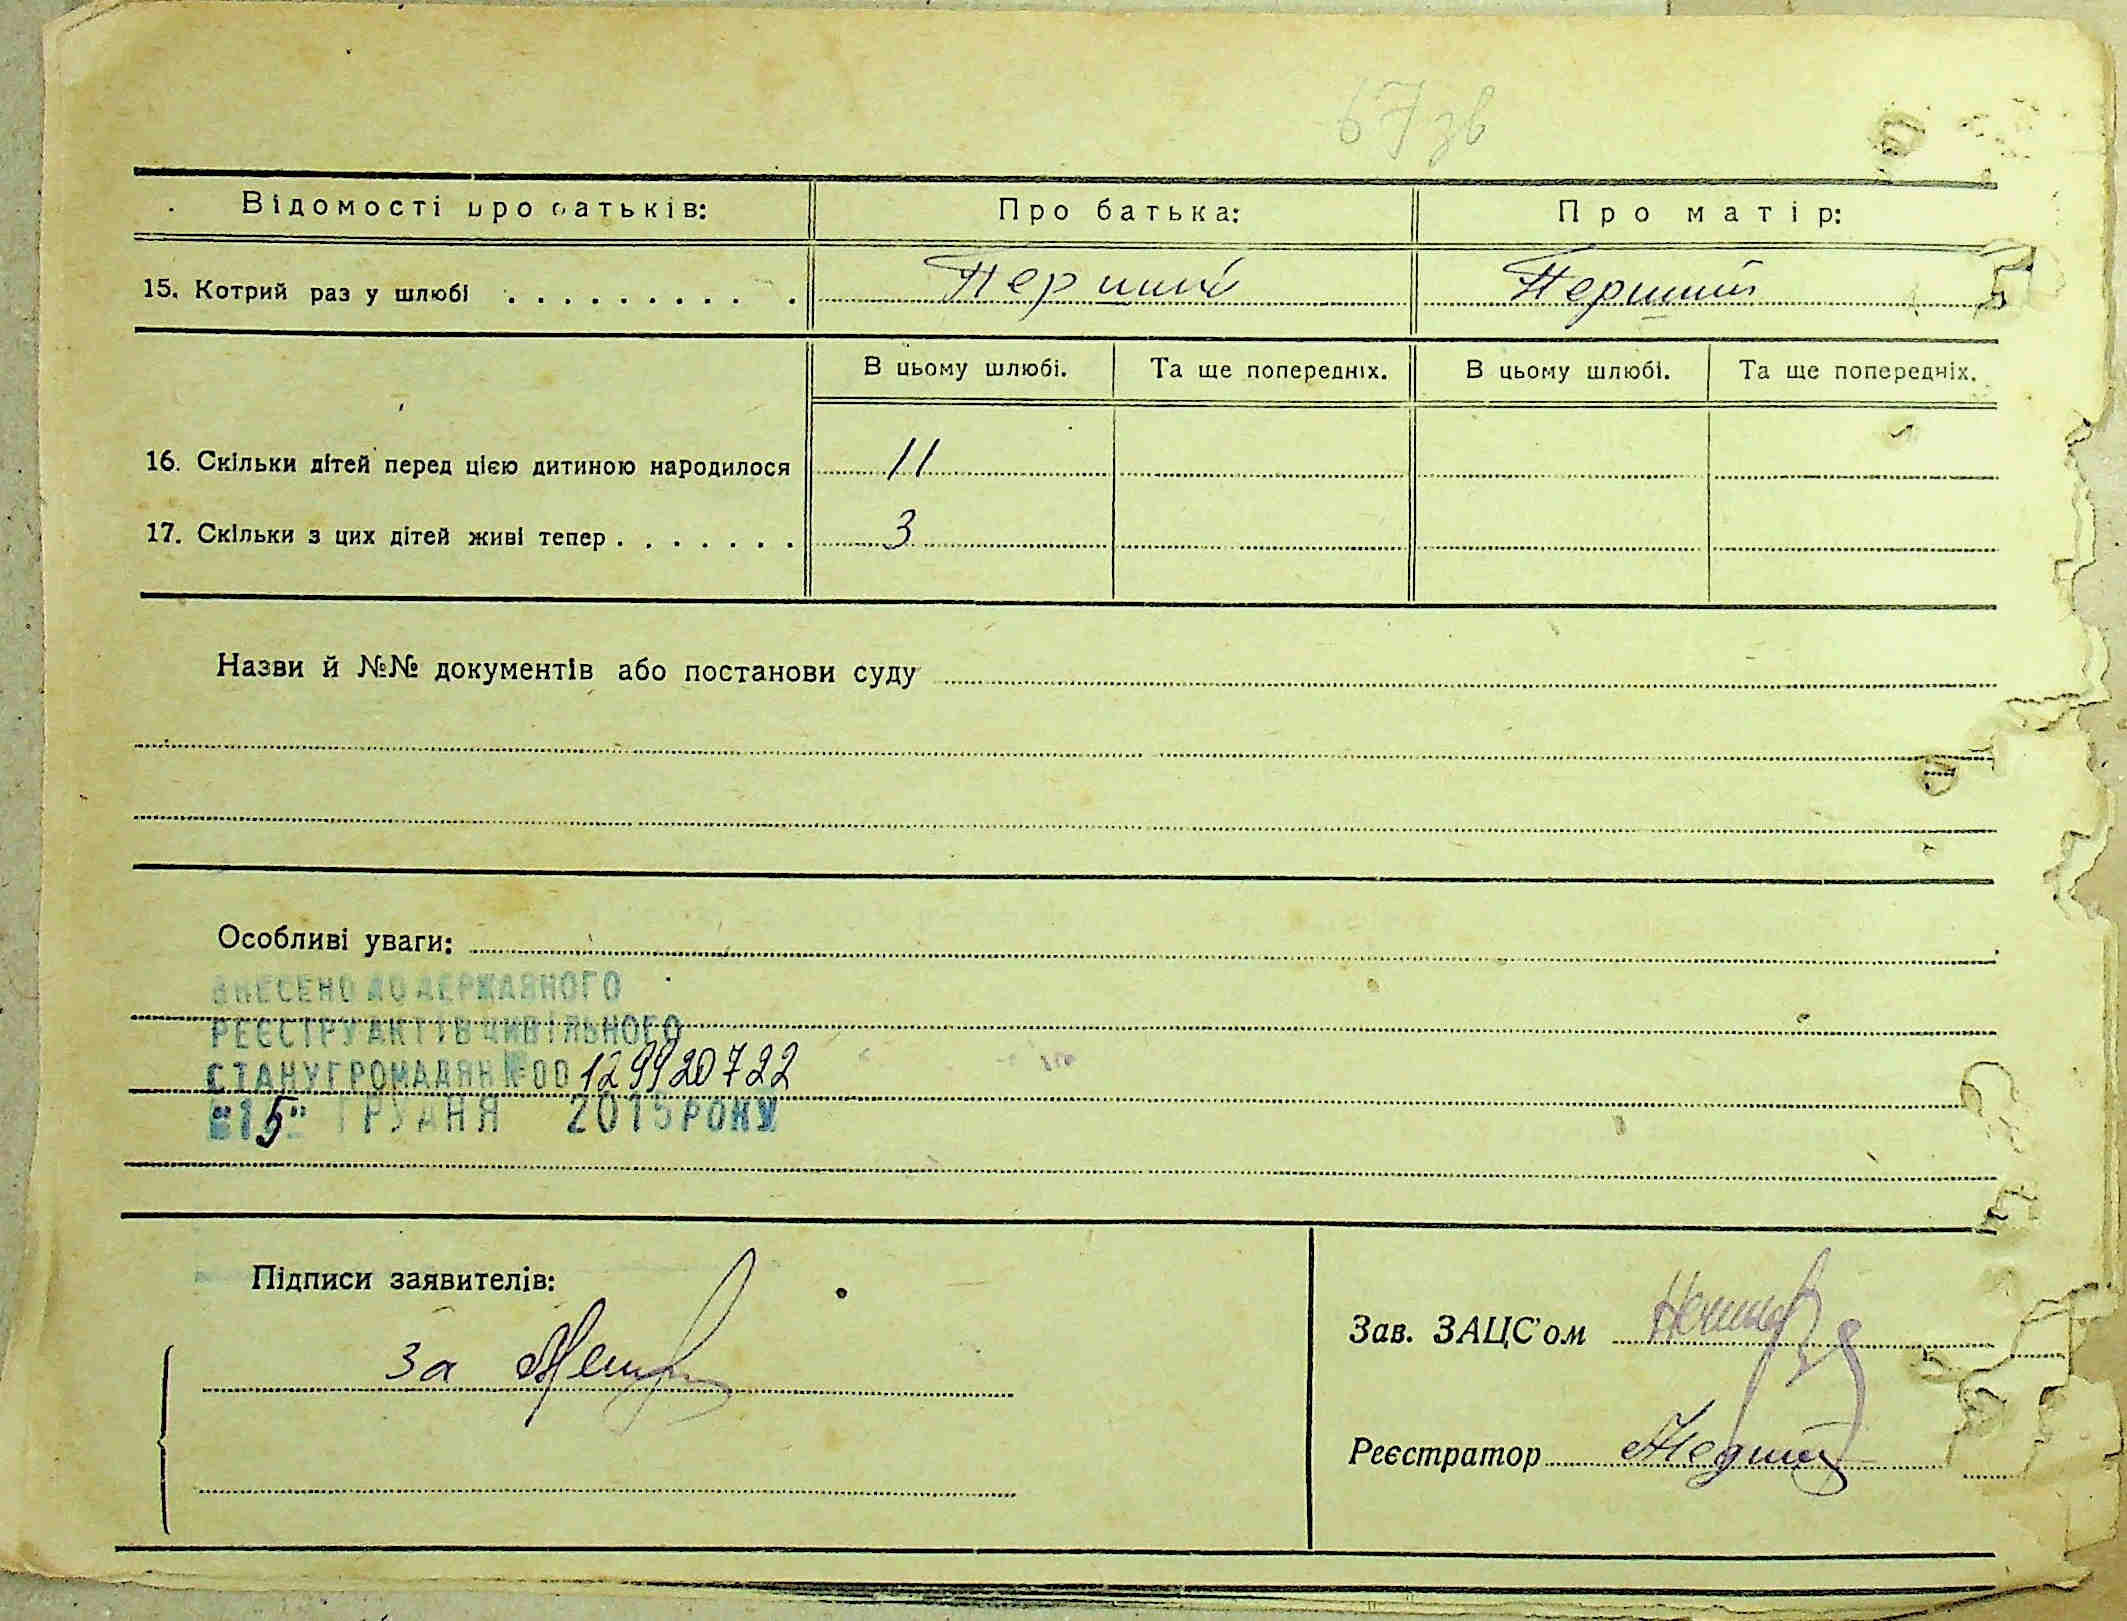 67 зв
Відомості про батьків: Про батька: Про матір:
15. Котрий раз у шлюбі . . . . . . . . . . Перший Перший
В цьому шлюбі. Та ще попередніх. В цьому шлюбі. Та ще попередніх.
16. Скільки дітей перед цією дитиною народилося 11
17. Скільки з цих дітей живі тепер . . . . . . . 3
Назви й №№ документів або постанови суду
Особливі уваги:
ВНЕСЕНО ДО ДЕРЖАВНОГО
РЕЄСТРУ АКТІВ ЦИВІЛЬНОГО
СТАНУ ГРОМАДЯН № 00129920722
"15" ГРУДНЯ 2015 РОКУ
Підписи заявителів:
за
Зав. ЗАЦС'ом
Реєстратор